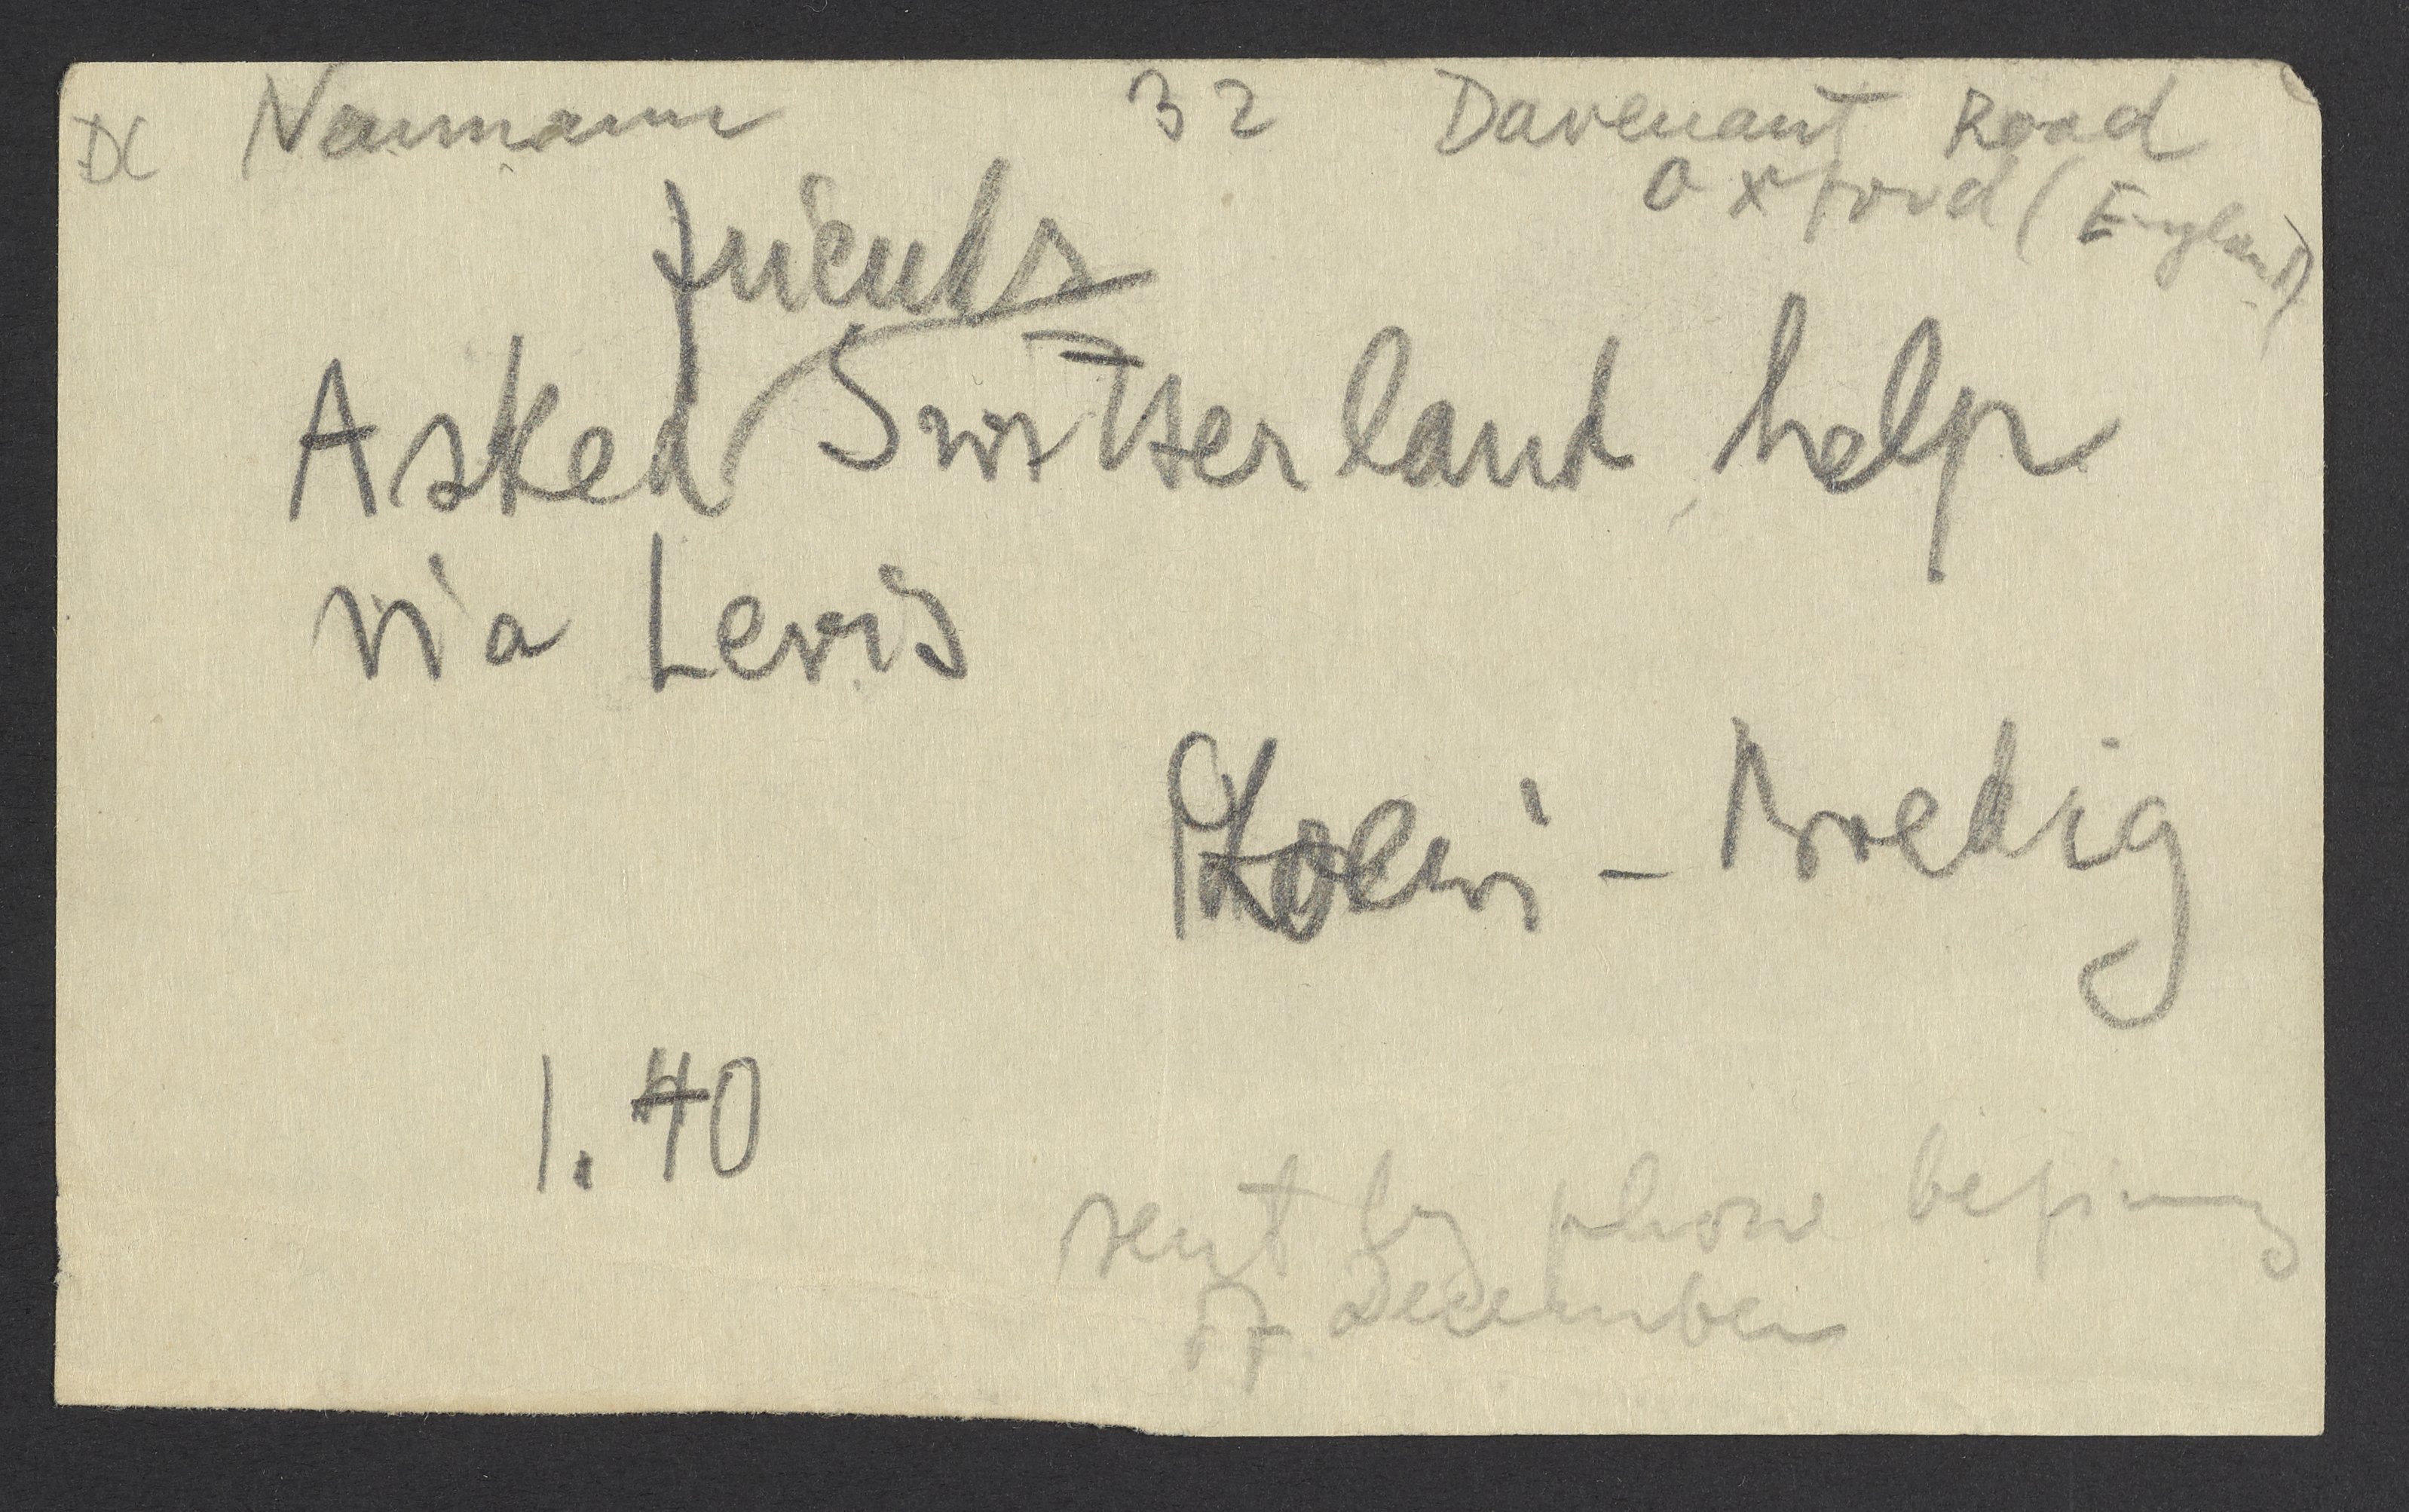 Naumann 32 Davenant Road
Oxford (England)
friends
Asked Switzerland help
via Levis
1.40
sent by phone beginning
of December